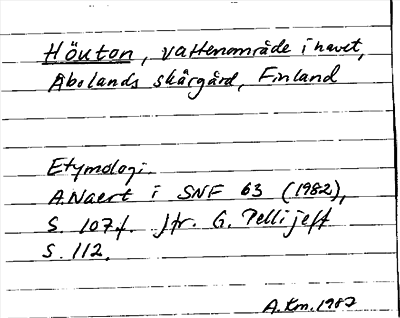 Höuton, vattenområde i havet,
Åbolands skärgård, Finland
Etymologi.
A. Naert i SNF 63 (1982),
s. 107f. Jfr. G. Pellijeff
s. 112.
A.Km. 1987